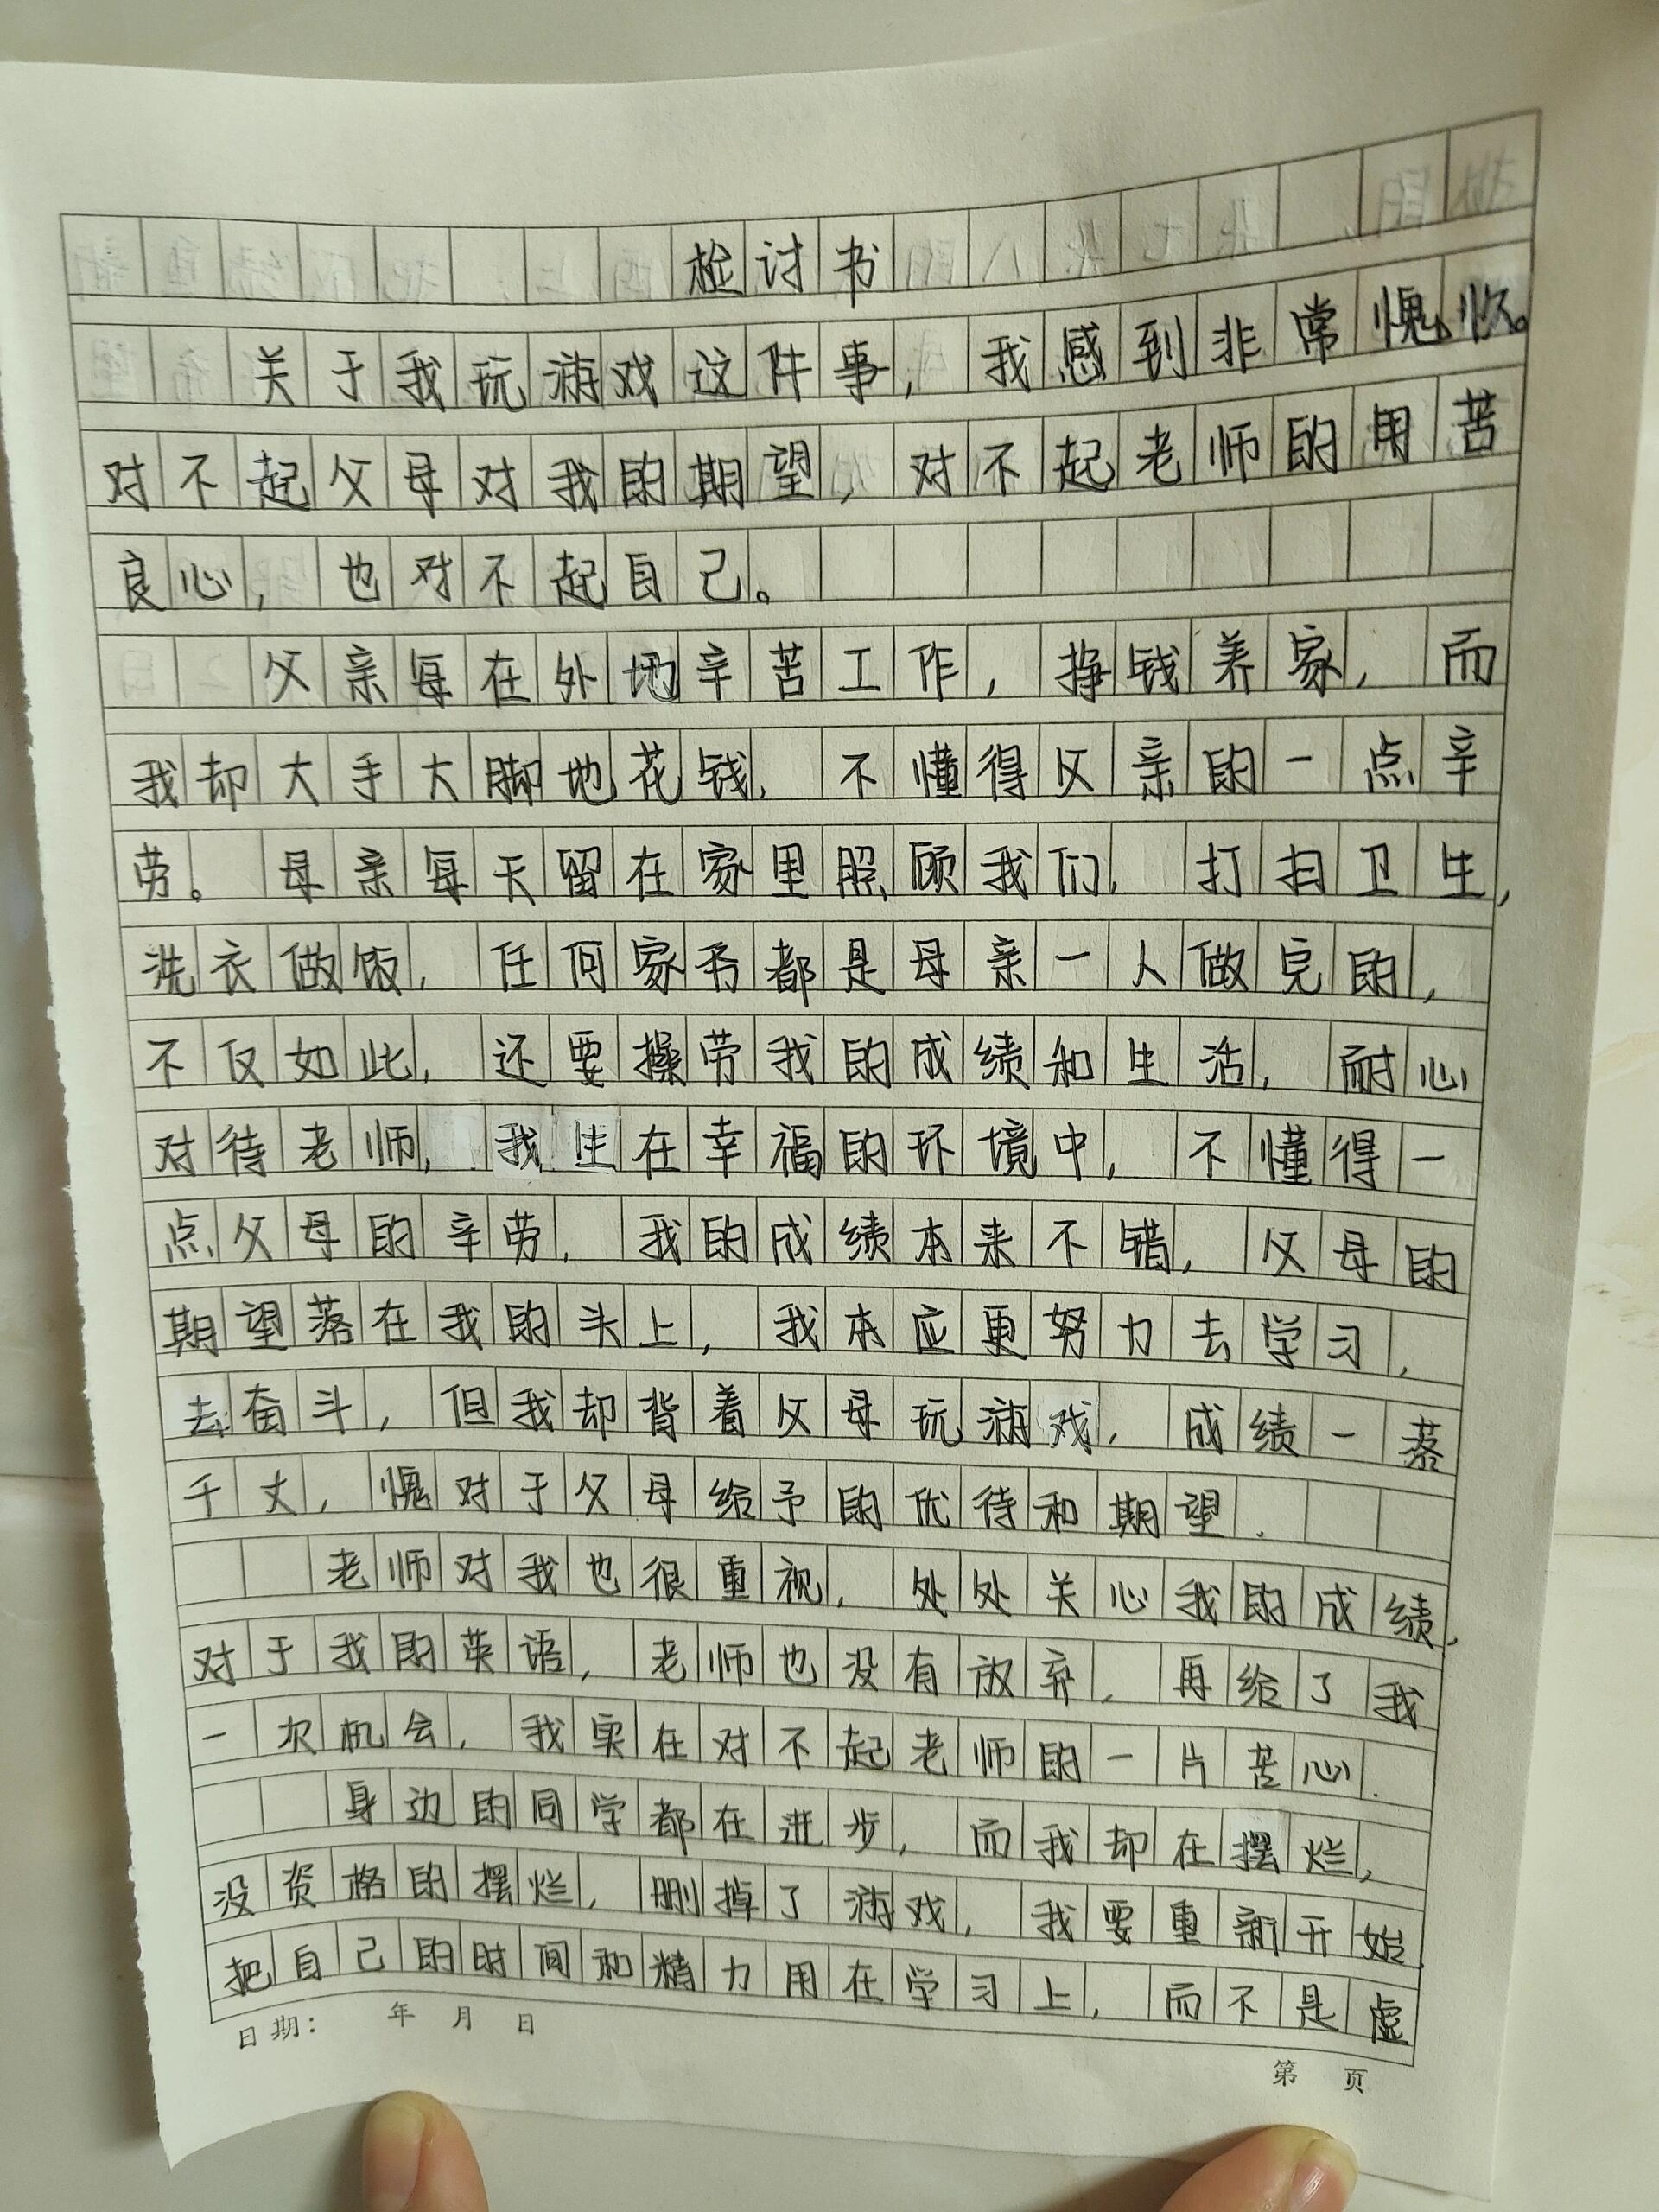 检讨书
关于我玩游戏这件事，我感到非常愧疚。
对不起父母对我的期望，对不起老师的用苦
良心，也对不起自己。
父亲每在外地辛苦工作，挣钱养家，而
我却大手大脚地花钱，不懂得父亲的一点辛
劳。母亲每天留在家里照顾我们，打扫卫生，
洗衣做饭，任何家务都是母亲一人做完的，
不仅如此，还要操劳我的成绩和生活，耐心
对待老师，我生在幸福的环境中，不懂得一
点父母的辛劳，我的成绩本来不错，父母的
期望落在我的头上，我本应更努力去学习，
去奋斗，但我却背着父母玩游戏，成绩一落
千丈，愧对于父母给予的优待和期望.
老师对我也很重视，处处关心我的成绩，
对于我的英语，老师也没有放弃，再给了我
一次机会，我实在对不起老师的一片苦心.
身边的同学都在进步，而我却在摆烂，
没资格的摆烂，删掉了游戏，我要重新开始
把自己的时间和精力用在学习上，而不是虚
日期： 年 月 日
第 页